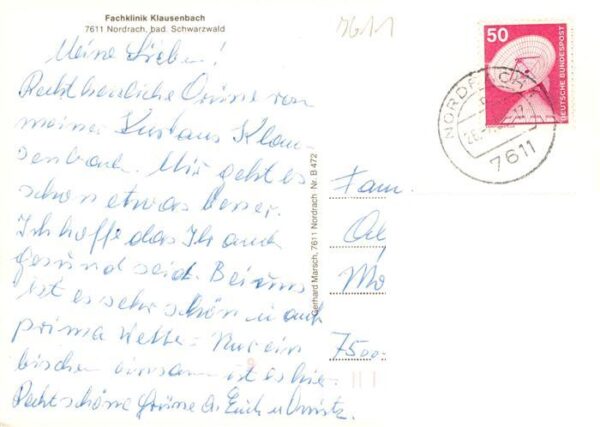 Fachklinik Klausenbach
7611 Nordrach, bad. Schwarzwald
7611
Meine Lieben!
Recht herzliche Grüsse von
meiner Kur aus Klau-
senbach. Mir geht es
schon etwas besser.
Ich hoffe das Ihr auch
gesund seid. Bei uns
ist es sehr schön u auch
prima Wetter. Nur ein
bischen einsam ist es hier
Recht schöne Grüsse a. Euch u
Gerhard Marsch, 7611 Nordrach Nr. B 472
50
DEUTSCHE BUNDESPOST
NORDRACH
7611
Fam.
Mo
7500